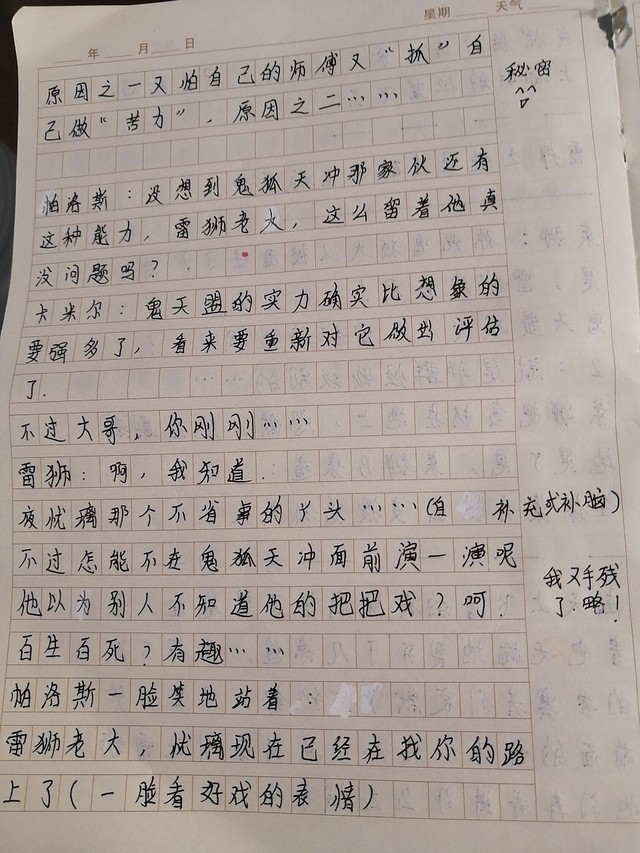 星期 天气
年 月 日
原因之一又怕自己的师傅又“抓”自
己做“苦力”，原因之二……
秘密
帕洛斯：没想到鬼狐天冲那家伙还有
这种能力，雷狮老大，这么留着他真
没问题吗？
卡米尔：鬼天盟的实力确实比想象的
要强多了，看来要重新对它做出评估
了.
不过大哥，你刚刚……
雷狮：啊，我知道.
夜忧璃那个不省事的丫头……（自 补充或补脑）
不过怎能不在鬼狐天冲面前演一演呢
他以为别人不知道他的把把戏？呵？
我又手残
了.略！
百生百死？有趣……
帕洛斯一脸笑地站着：
雷狮老大，忧璃现在已经在找你的路
上了（一脸看好戏的表情）